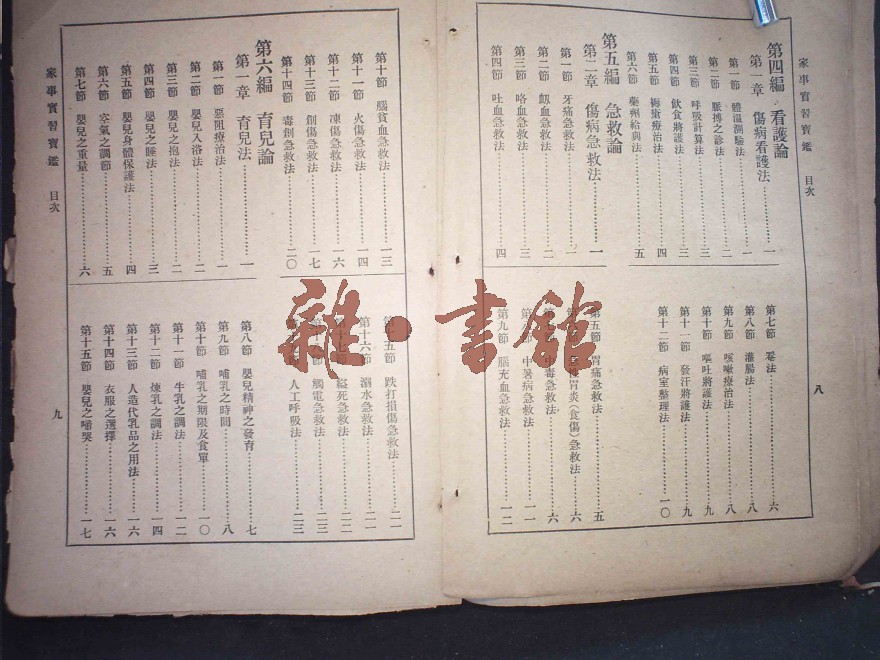 家事實習寶鑑 目次
八
第四編 看護論
第一章 傷病看護法……一
第一節 體溫測驗法……一
第二節 脈搏之診法……二
第三節 呼吸計算法……三
第四節 飲食將護法……三
第五節 褥瘡療治法……四
第六節 藥劑給與法……五
第七節 罨法……六
第八節 灌腸法……八
第九節 咳嗽療治法……八
第十節 嘔吐將護法……九
第十一節 發汗將護法……九
第十二節 病室整理法……一〇
第五編 急救論
第一章 傷病急救法……一
第一節 牙痛急救法……一
第二節 衂血急救法……二
第三節 咯血急救法……三
第四節 吐血急救法……四
第五節 胃痛急救法……五
胃炎(食傷)急救法……六
中毒急救法……六
中暑病急救法……一一
第九節 腦充血急救法……一二
第十節 腦貧血急救法……一三
第十一節 火傷急救法……一四
第十二節 凍傷急救法……一六
第十三節 創傷急救法……一七
第十四節 毒創急救法……二〇
五節 跌打損傷急救法……二一
第十六節 溺水急救法……二一
縊死急救法……二二
觸電急救法……二三
人工呼吸法……二三
第六編 育兒論
第一章 育兒法……一
第一節 惡阻療治法……一
第二節 嬰兒入浴法……二
第三節 嬰兒之抱法……二
第四節 嬰兒之睡法……三
第五節 嬰兒身體保護法……四
第六節 空氣之調節……五
第七節 嬰兒之重量……六
第八節 嬰兒精神之發育……七
第九節 哺乳之時間……八
第十節 哺乳之期限及食單……一〇
第十一節 牛乳之調法……一二
第十二節 煉乳之調法……一四
第十三節 人造代乳品之用法……一六
第十四節 衣服之選擇……一六
第十五節 嬰兒之啼哭……一七
家事實習寶鑑 目次
九
雜·書館